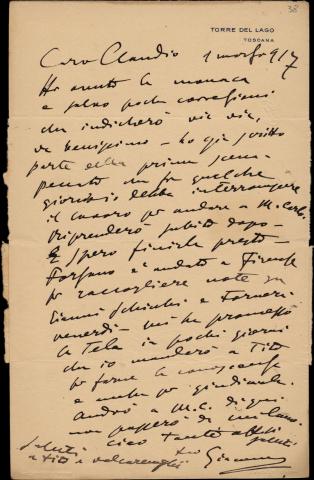 38
TORRE DEL LAGO
TOSCANA
Caro Claudio 1 marzo 917
Ho avuto la monaca
e salvo poche correzioni
che indicherò via via,
va benissimo - ho già scritto
parte della prima scena
peccato che fra qualche
giorno io debba interrompere
il lavoro per andare a M. Carlo.
Riprenderò subito dopo -
E spero finirla presto -
Forzano è andato a Firenze
per raccogliere note su
Gianni Schicchi e Tornerà
venerdì - mi ha promesso
la Tela in pochi giorni
che io manderò a Tito
per farne la conoscenza
e anche per giudicarla.
Andrò a M.C. di qui
non passerò da Milano.
ciao tante affett
saluti
tuo Giacomo
Saluti
a Tito e Valcarenghi